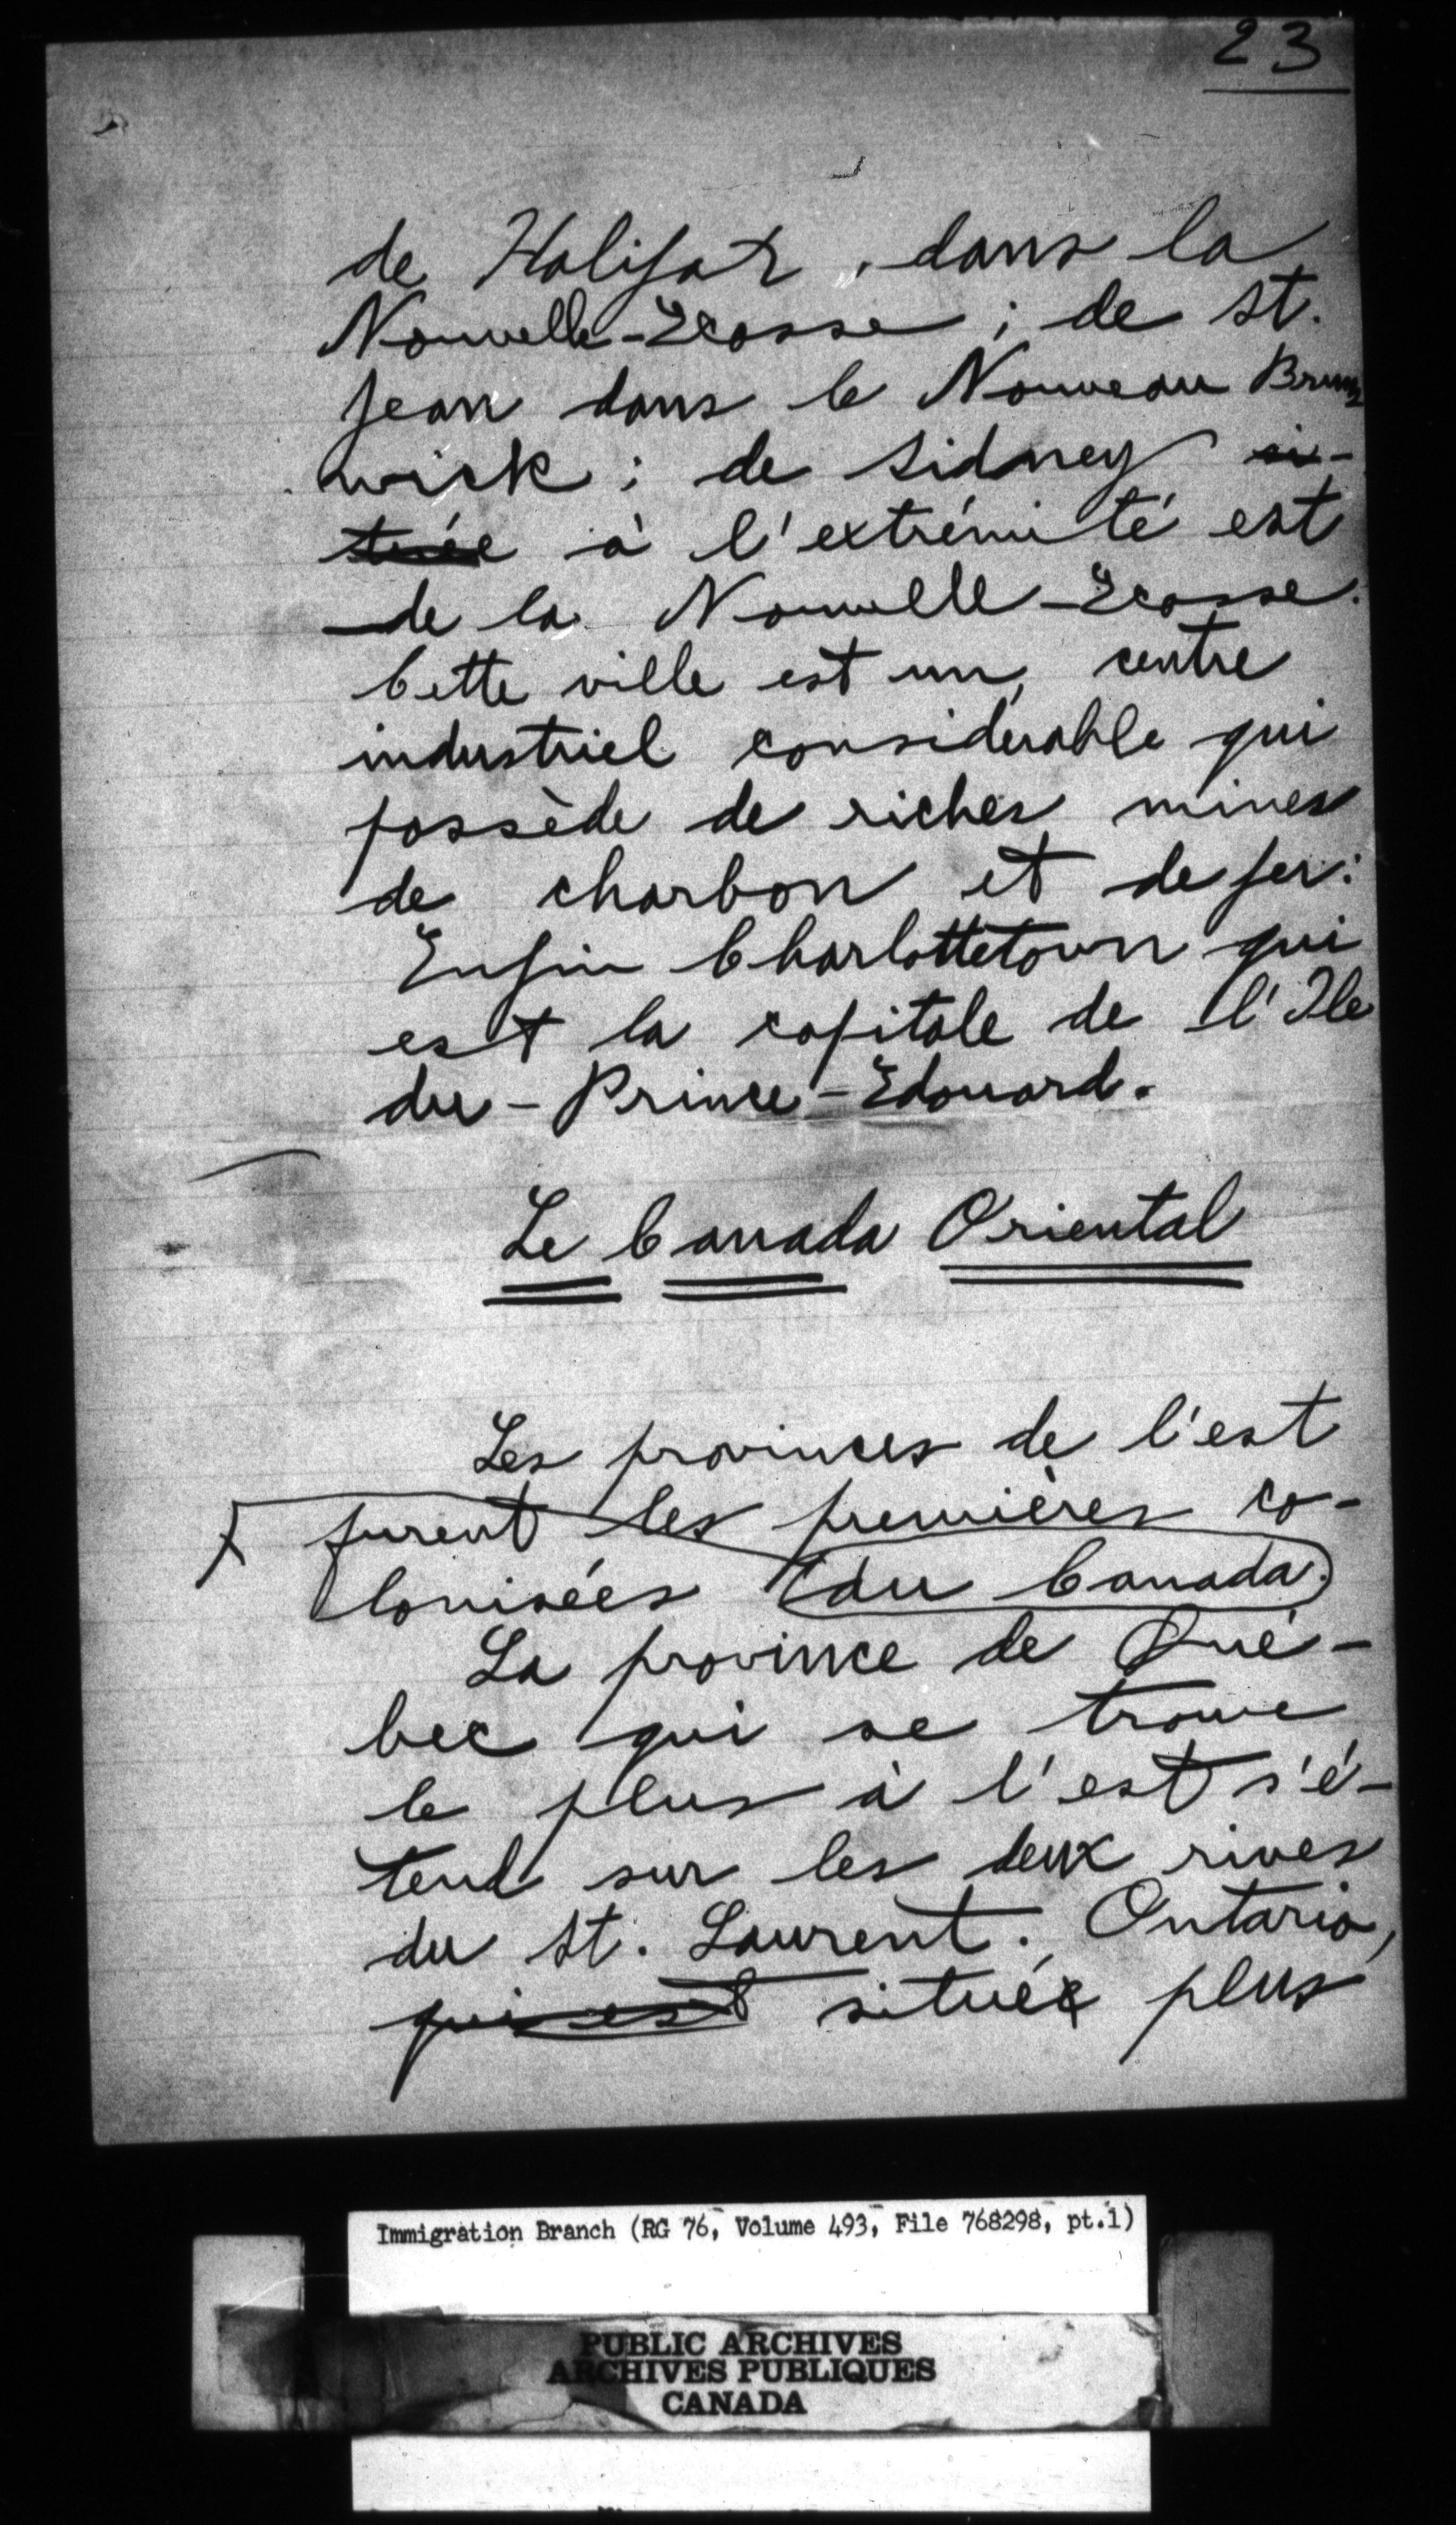 23
de Halifax, dans la
Nouvelle-Ecosse ; de St.
Jean dans le Nouveau Bruns
wick ; de Sidney si-
tuée à l'extrémité est
de la Nouvelle-Ecosse.
Cette ville est un centre
industriel considérable qui
possède de riches mines
de charbon et de fer.
Enfin Charlottetown qui
est la capitale de l'Ile
du-Prince-Edouard.
Le Canada Oriental
Les provinces de l'est
furent les premières co-
lonisées du Canada.
La province de Qué-
bec qui se trouve
le plus à l'est s'é-
tend sur les deux rives
du St. Laurent. Ontario,
qui est située plus
Immigration Branch (RG 76, Volume 493, File 768298, pt.1)
PUBLIC ARCHIVES
ARCHIVES PUBLIQUES
CANADA